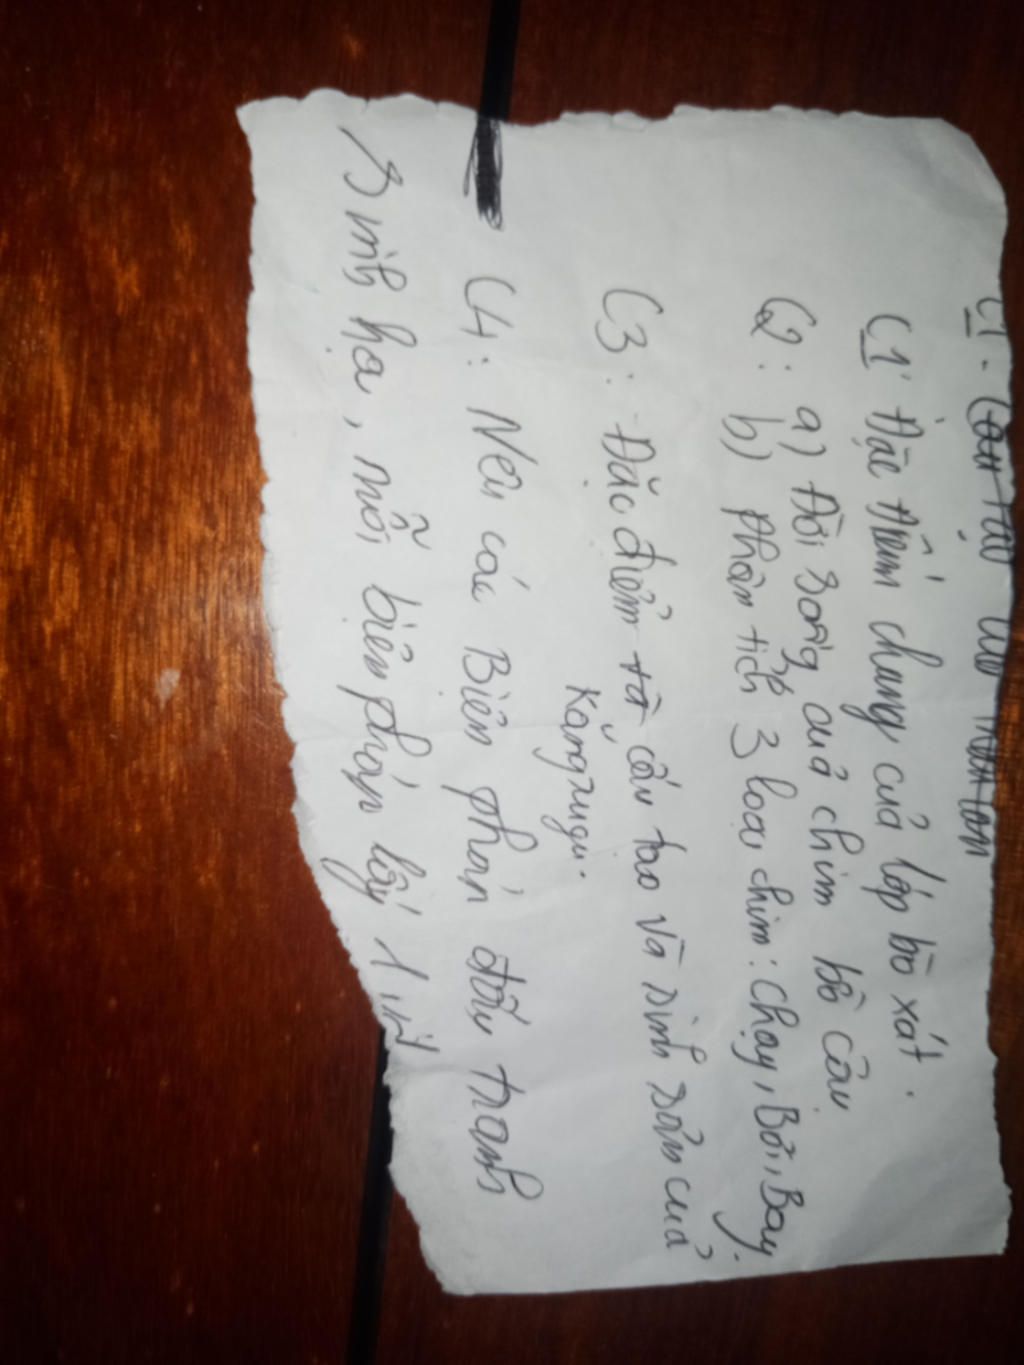 C1' Đặc điểm chung của lớp bò xát.
C2: a) Đời sống cuả chim bồ câu
b) Phân tích 3 loại chim: Chạy, Bơi, Bay.
C3: Đặc điểm cấu tạo và sinh sản cuả
Kăngzugu.
C4: Nêu các Biện pháp đấu tranh
sinh họa, mỗi biện pháp lấy 1